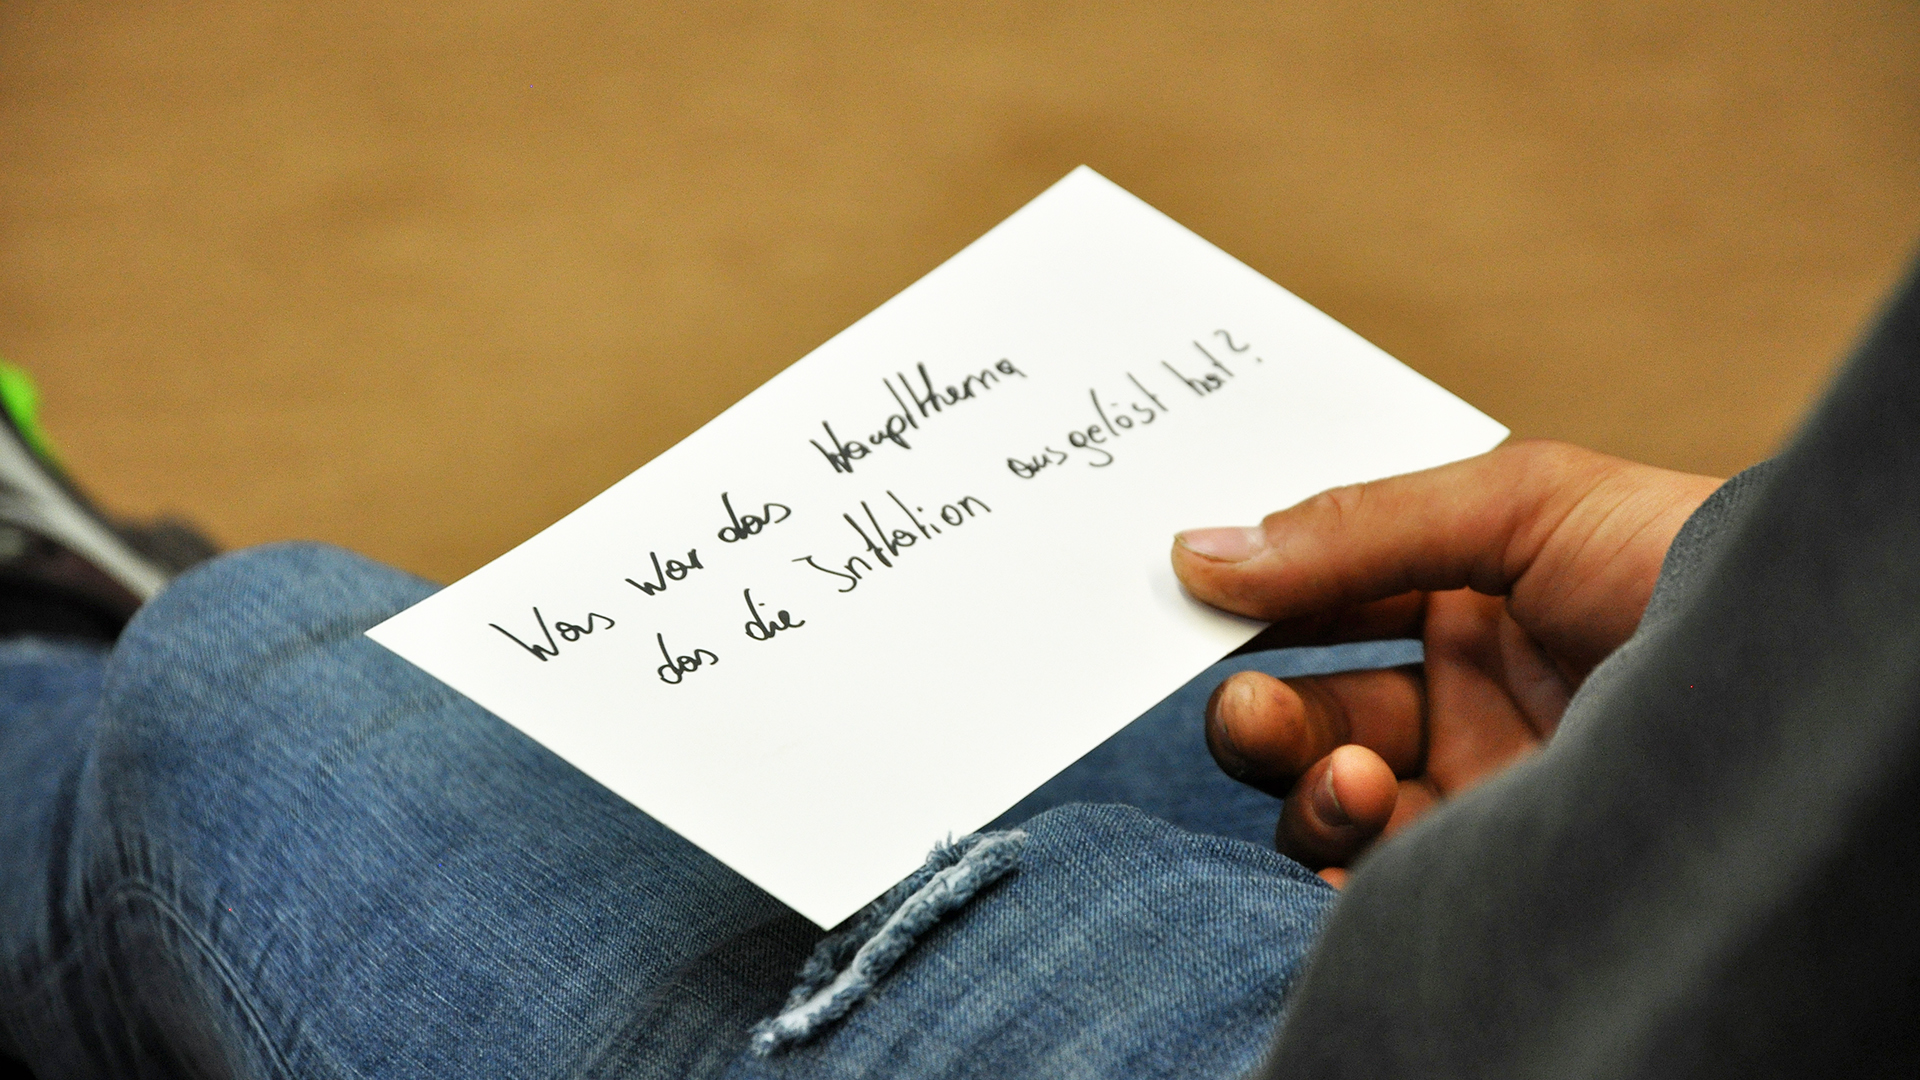 Was war das Hauptthema
das die Inflation ausgelöst hat?